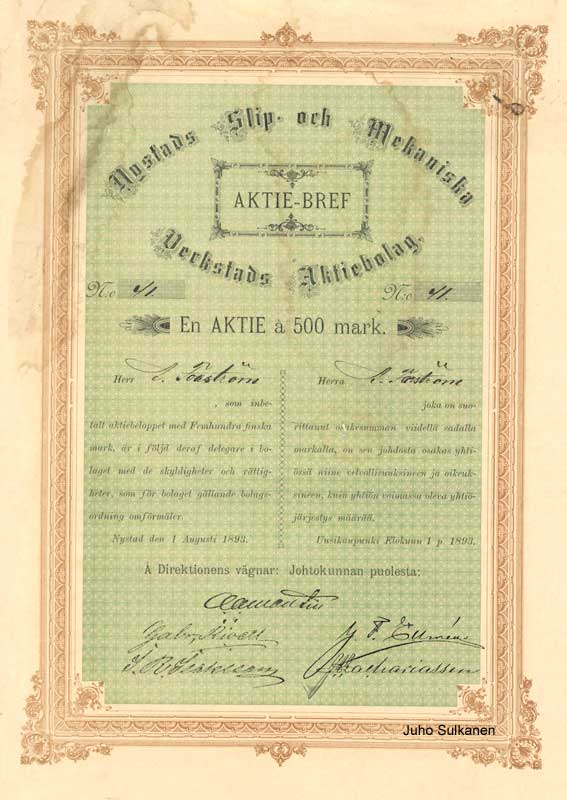 Nystads Slip- och Mekaniska
AKTIE-BREF
Verkstads Aktiebolag.
N:o 41. N:o 41.
En AKTIE à 500 mark.
Herr
, som inbe-
talt aktiebeloppet med Femhundra finska
mark, är i följd deraf delegare i bo-
laget med de skyldigheter och rättig-
heter, som för bolaget gällande bolags-
ordning omförmäler.
Nystad den 1 Augusti 1893.
Herra
joka on suo-
rittanut osakesumman viidellä sadalla
markalla, on sen johdosta osakas yhti-
össä niine velvollisuuksineen ja oikeuk-
sineen, kuin yhtiön voimassa oleva yhtiö-
järjestys määrää.
Uusikaupunki Elokuun 1 p. 1893.
Å Direktionens vägnar: Johtokunnan puolesta:
Juho Sulkanen